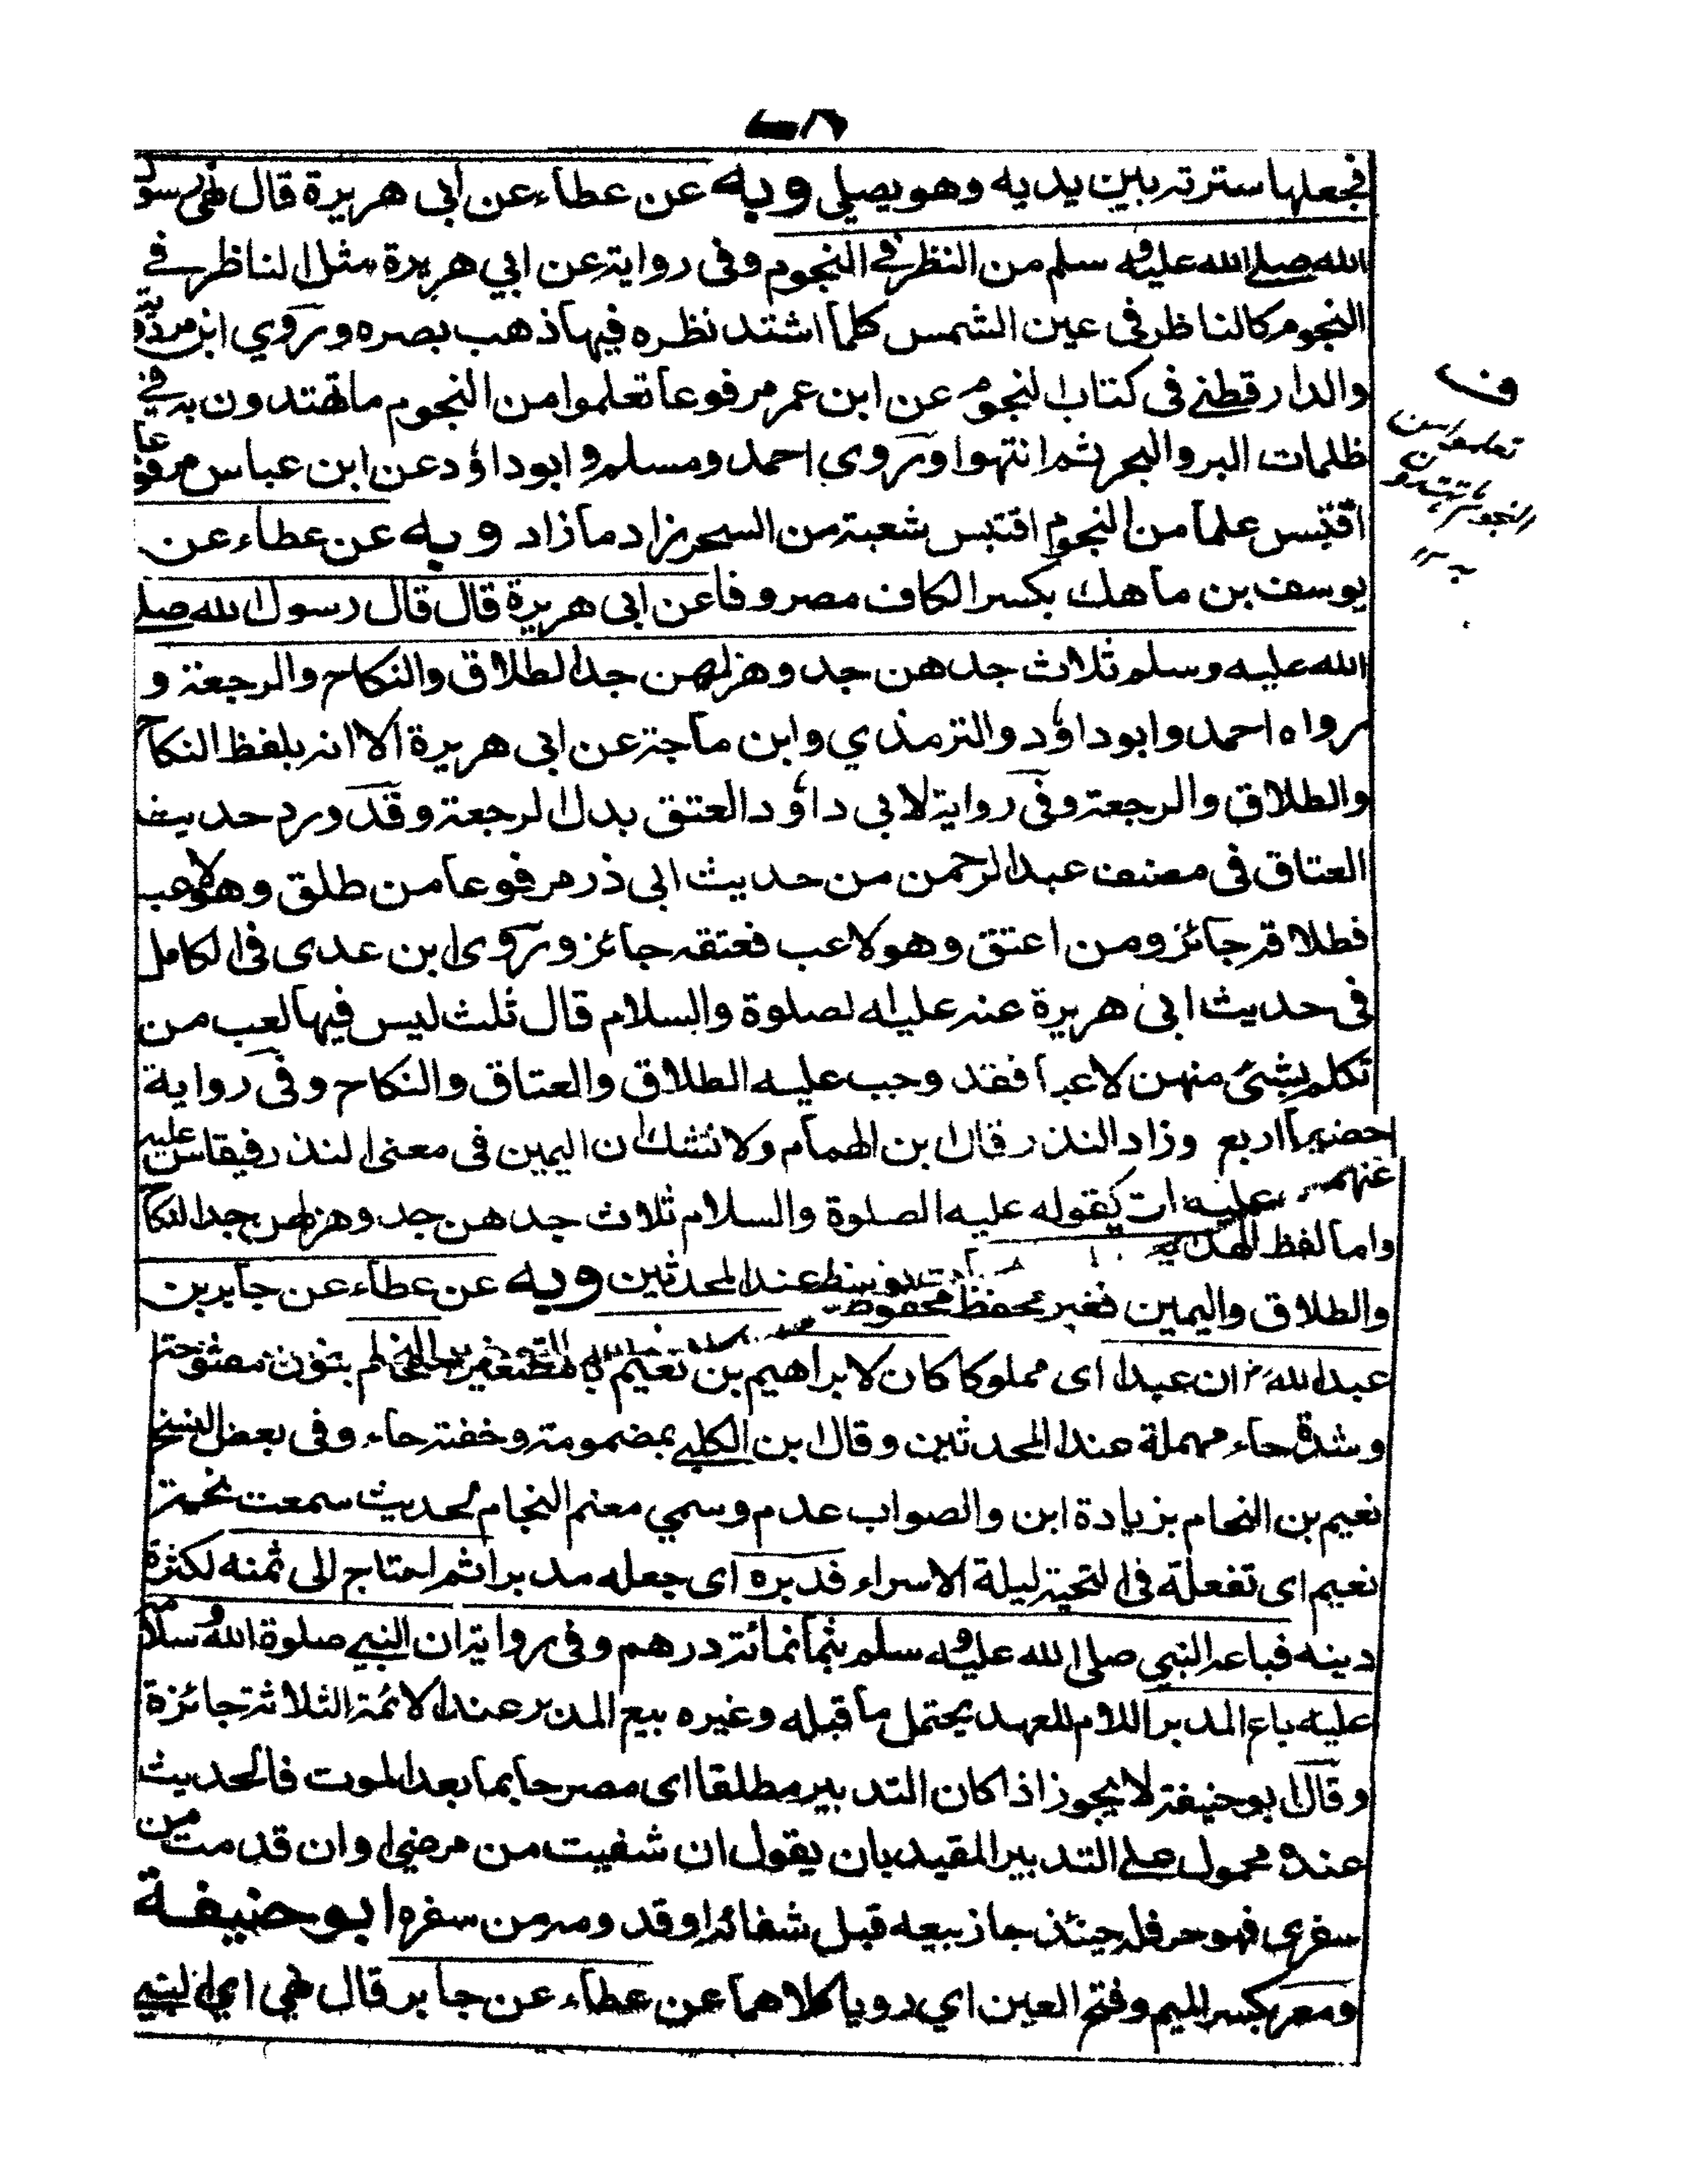 فجعلها سترته بين يديه وهو يصلي وبه عن عطاء عن أبي هريرة قال نهى رسول
الله صلى الله عليه وسلم من النظر في النجوم وفى رواية عن ابي هريرة مثل الناظر في
النجوم كالناظر فى عين الشمس كلما اشتد نظره فيها ذهب بصره وروي ابن مردويه
والدارقطنى فى كتاب النجوم عن ابن عمر مرفوعا تعلموا من النجوم ما تهتدون به في
ظلمات البر والبحر ثم انتهوا وروى احمد ومسلم وابوداؤد عن ابن عباس مرفوعا
اقتبس علما من النجوم اقتبس شعبة من السحر زاد ما زاد وبه عن عطاء عن
يوسف بن ماهك بكسر الكاف مصروفا عن ابى هريرة قال قال رسول الله صلى
الله عليه وسلم ثلاث جدهن جد وهزلهن جد الطلاق والنكاح والرجعة و
رواه احمد وابوداؤد والترمذي وابن ماجة عن ابى هريرة الا انه بلفظ النكاح
والطلاق والرجعة وفى رواية لابى داؤد العتق بدل الرجعة وقد ورد حديث
العتاق فى مصنف عبد الرحمن من حديث ابى ذر مرفوعا من طلق وهو لاعب
فطلاقه جائز ومن اعتق وهو لاعب فعتقه جائز وروى ابن عدى فى الكامل
فى حديث ابى هريرة عنه عليه الصلوة والسلام قال ثلث ليس فيها لعب من
تكلم بشئ منهن لاعبا فقد وجب عليه الطلاق والعتاق والنكاح وفى رواية
اربع وزاد النذر قال ابن الهمام ولا نشك ان اليمين فى معنى النذر فيقاس عليه
عليه كقوله عليه الصلوة والسلام ثلاث جدهن جد وهزلهن جد النكاح
واما لفظ الهداية
والطلاق واليمين فغير محفوظ عند المحدثين وبه عن عطاء عن جابر بن
عبد الله ان عبدا اى مملوكا كان لابراهيم بن نعيم النحام بنون مفتوحة
وشدة حاء مهملة عند المحدثين وقال ابن الكلبى بمضمومة وخفة حاء وفى بعض النسخ
نعيم بن النحام بزيادة ابن والصواب عدم وسمي النحام لحديث سمعت نحمة
نعيم اى تفعلة فى التحية ليلة الاسراء فدبره اى جعله مدبرا ثم احتاج الى ثمنه لكثرة
دينه فباعه النبي صلى الله عليه وسلم بثمانمائة درهم وفى رواية ان النبي صلوة الله وسلامه
عليه باع المدبر اللام للعهد يحتمل ما قبله وغيره بيع المدبر عند الائمة الثلاثة جائزة
وقال ابوحنيفة لا يجوز اذا كان التدبير مطلقا اى مصرحا بما بعد الموت فالحديث
عنده محمول على التدبير المقيد بان يقول ان شفيت من مرضى او ان قدمت من
سفرى فهو حر فله حينئذ جاز بيعه قبل شفائه او قدومه من سفره ابوحنيفة
ومعر بكسر الميم وفتح العين اي رويا كلاهما عن عطاء عن جابر قال نهى اي النبي
ف
تعلموا من
النجوم ما تهتدون
به